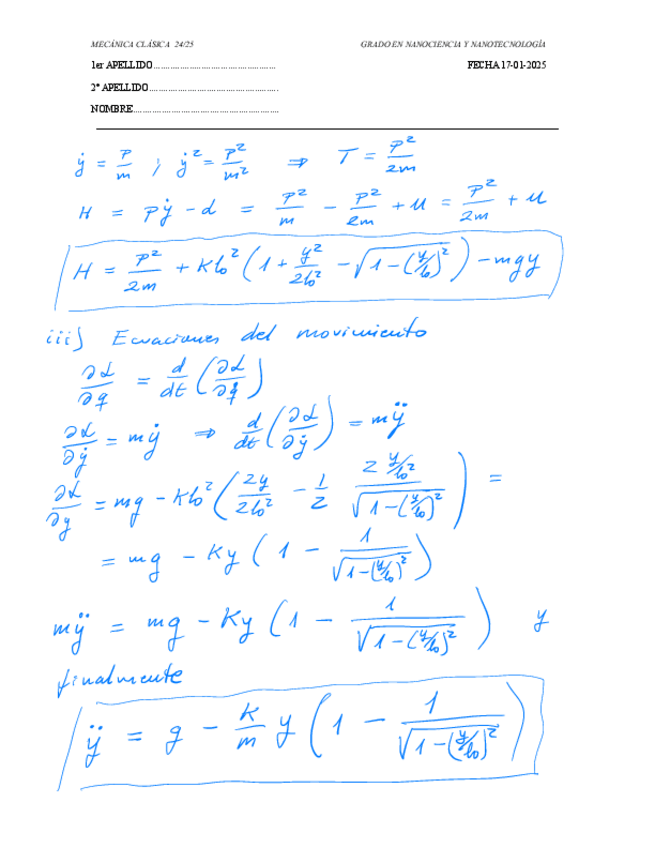 MECÁNICA CLÁSICA 24/25 GRADO EN NANOCIENCIA Y NANOTECNOLOGÍA
1er APELLIDO................................................ FECHA 17-01-2025
2º APELLIDO..................................................
NOMBRE.........................................................
ẏ = p/m ; ẏ² = p²/m² ⇒ T = p²/2m
H = pẏ - L = p²/m - p²/2m + U = p²/2m + U
H = p²/2m + Kl₀² (1 + y²/2l₀² - √(1-(y/l₀)²)) - mgy
iii) Ecuaciones del movimiento
∂L/∂q = d/dt (∂L/∂q̇)
∂L/∂ẏ = mẏ ⇒ d/dt (∂L/∂ẏ) = mÿ
∂L/∂y = mg - Kl₀² (2y/2l₀² - 1/2 2 y/l₀² / √(1-(y/l₀)²)) =
= mg - Ky (1 - 1/√(1-(y/l₀)²))
mÿ = mg - Ky (1 - 1/√(1-(y/l₀)²)) y
finalmente
ÿ = g - K/m y (1 - 1/√(1-(y/l₀)²))